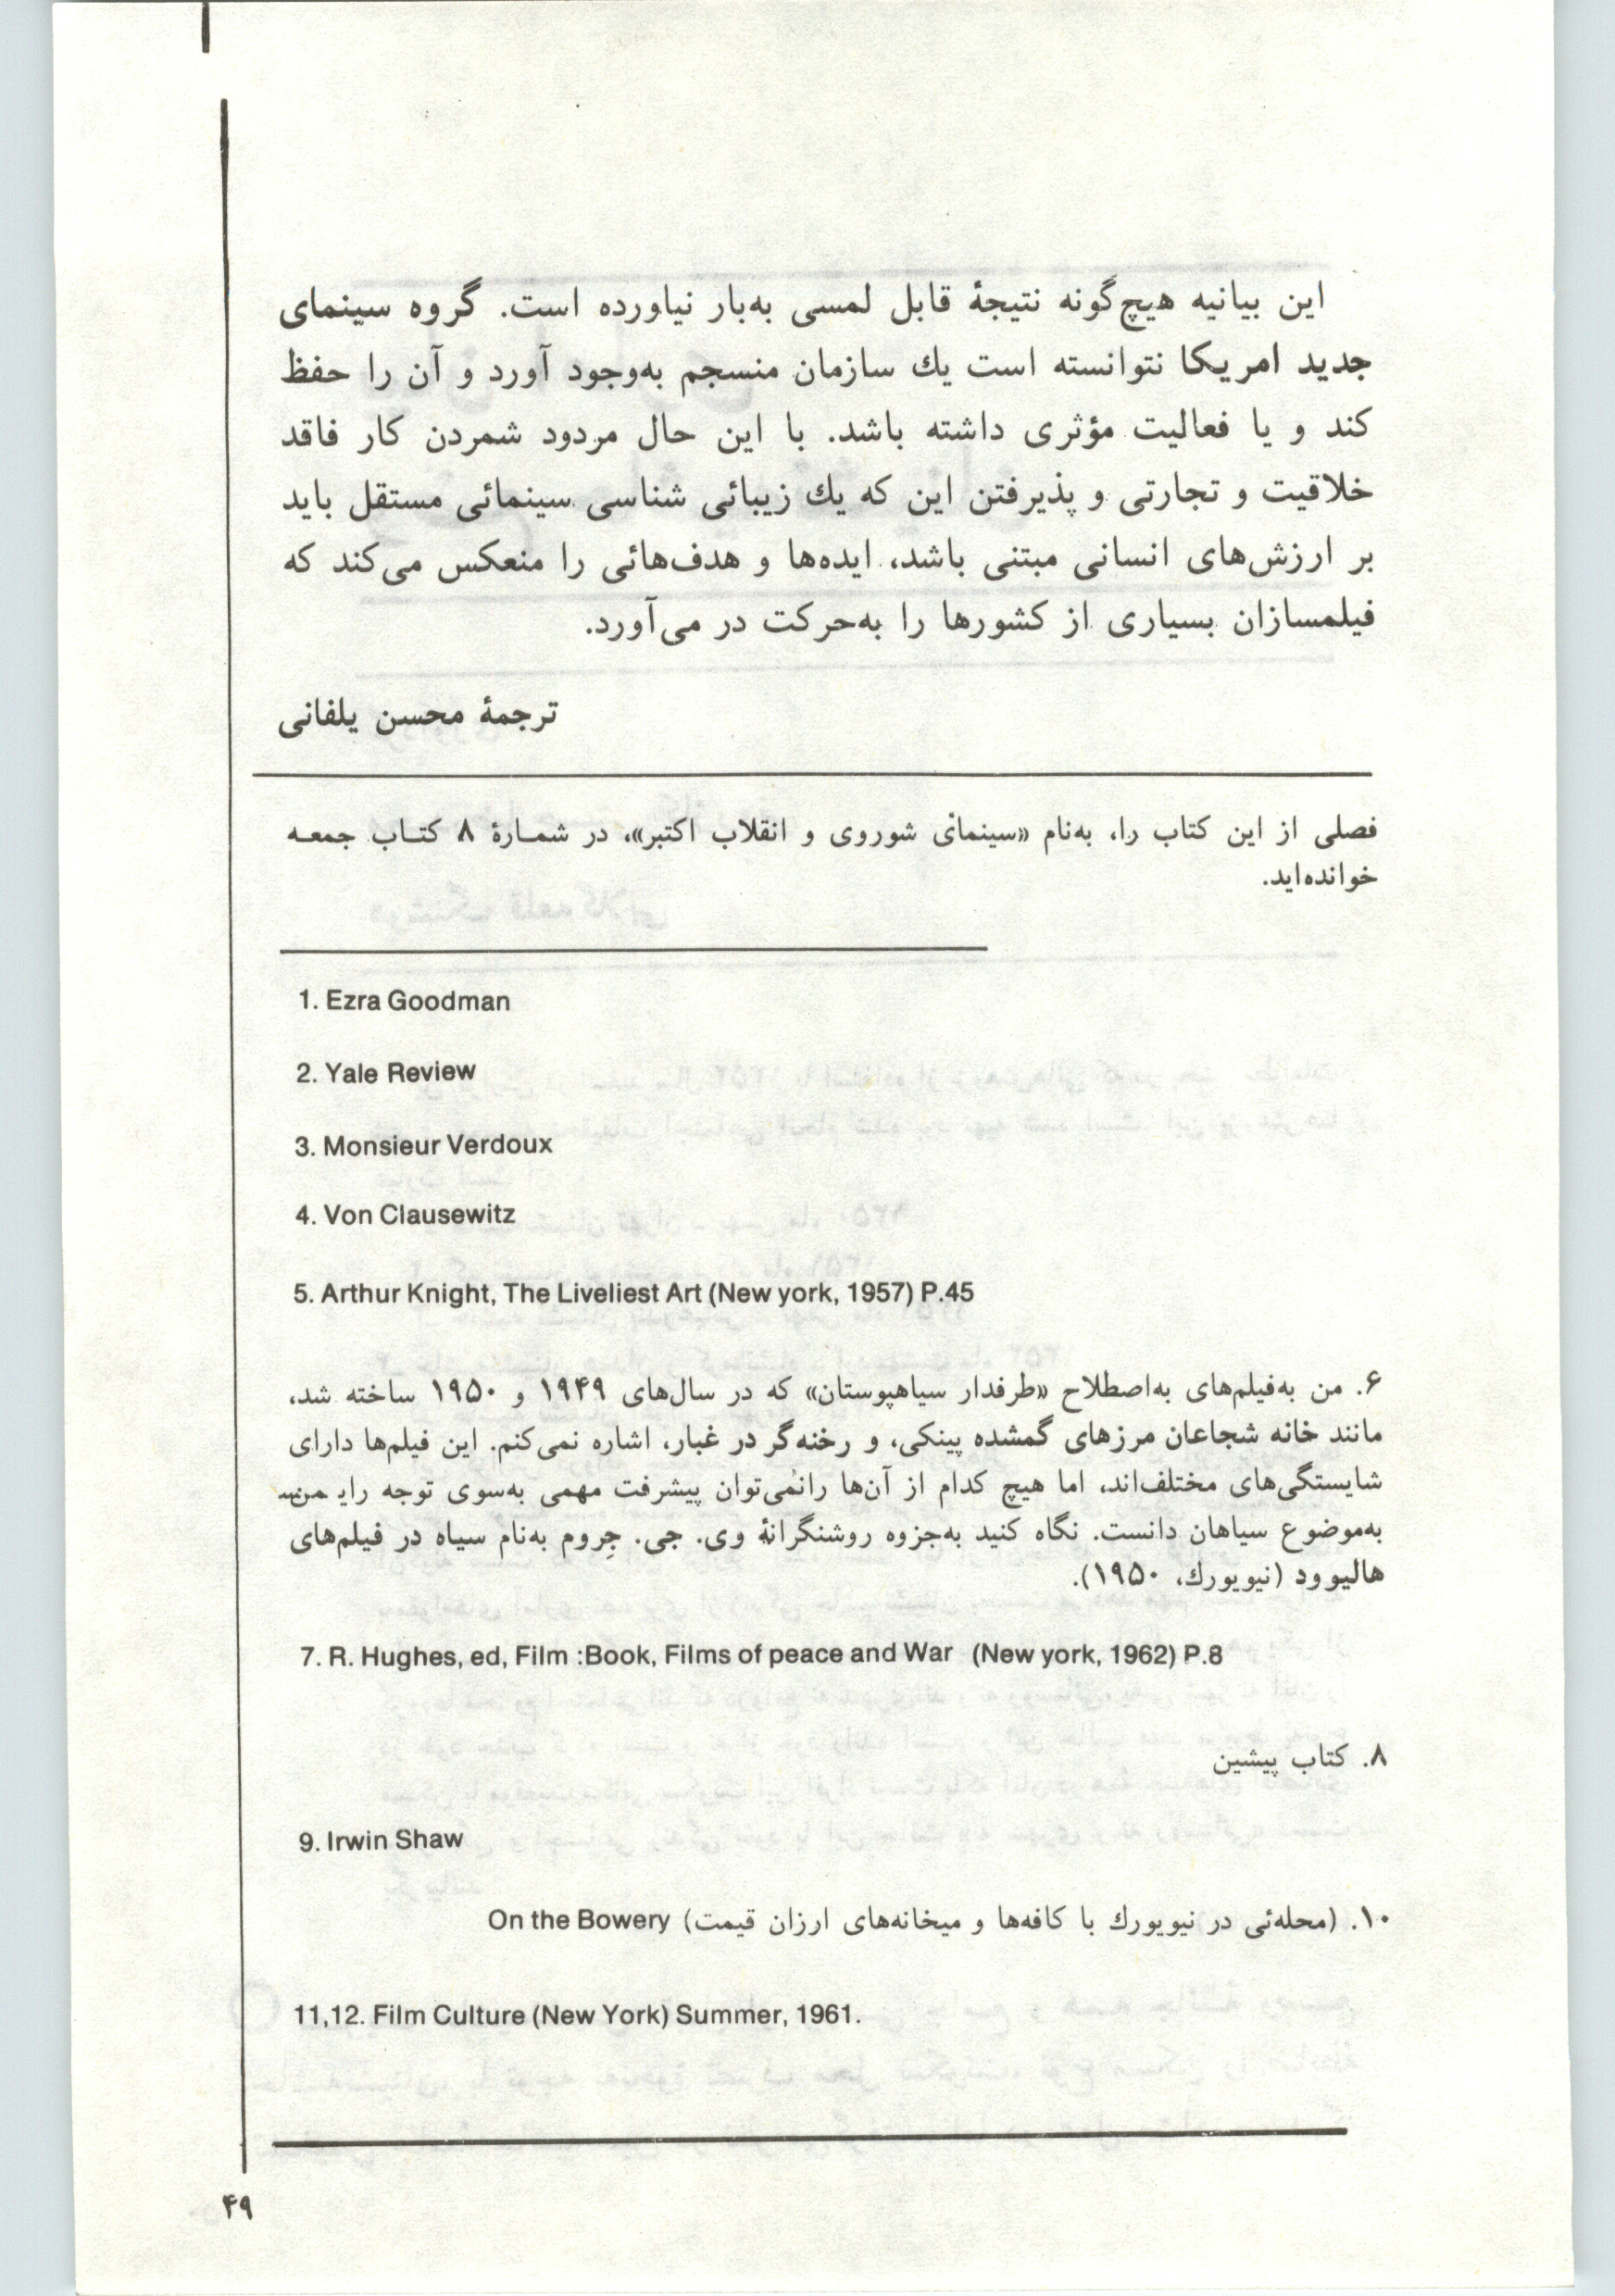 این بیانیه هیچ‌گونه نتیجهٔ قابل لمسی به‌بار نیاورده است. گروه سینمای
جدید امریکا نتوانسته است یك سازمان منسجم به‌وجود آورد و آن را حفظ
کند و یا فعالیت مؤثری داشته باشد. با این حال مردود شمردن کار فاقد
خلاقیت و تجارتی و پذیرفتن این که یك زیبائی شناسی سینمائی مستقل باید
بر ارزش‌های انسانی مبتنی باشد، ایده‌ها و هدف‌هائی را منعکس می‌کند که
فیلمسازان بسیاری از کشورها را به‌حرکت در می‌آورد.
ترجمهٔ محسن یلفانی
فصلی از این کتاب را، به‌نام «سینمای شوروی و انقلاب اکتبر»، در شمـارهٔ ۸ کتـاب جمعـه
خوانده‌اید.
1. Ezra Goodman
2. Yale Review
3. Monsieur Verdoux
4. Von Clausewitz
5. Arthur Knight, The Liveliest Art (New york, 1957) P.45
۶. من به‌فیلم‌های به‌اصطلاح «طرفدار سیاهپوستان» که در سال‌های ۱۹۴۹ و ۱۹۵۰ ساخته شد،
مانند خانه شجاعان مرزهای گمشده پینکی، و رخنه‌گر در غبار، اشاره نمی‌کنم. این فیلم‌ها دارای
شایستگی‌های مختلف‌اند، اما هیچ کدام از آن‌ها رانمی‌توان پیشرفت مهمی به‌سوی توجه
به‌موضوع سیاهان دانست. نگاه کنید به‌جزوه روشنگرانهٔ وی. جی. جِروم به‌نام سیاه در فیلم‌های
هالیوود (نیویورك، ۱۹۵۰).
7. R. Hughes, ed, Film :Book, Films of peace and War (New york, 1962) P.8
۸. کتاب پیشین
9. Irwin Shaw
۱۰. (محله‌ئی در نیویورك با کافه‌ها و میخانه‌های ارزان قیمت) On the Bowery
11,12. Film Culture (New York) Summer, 1961.
۴۹